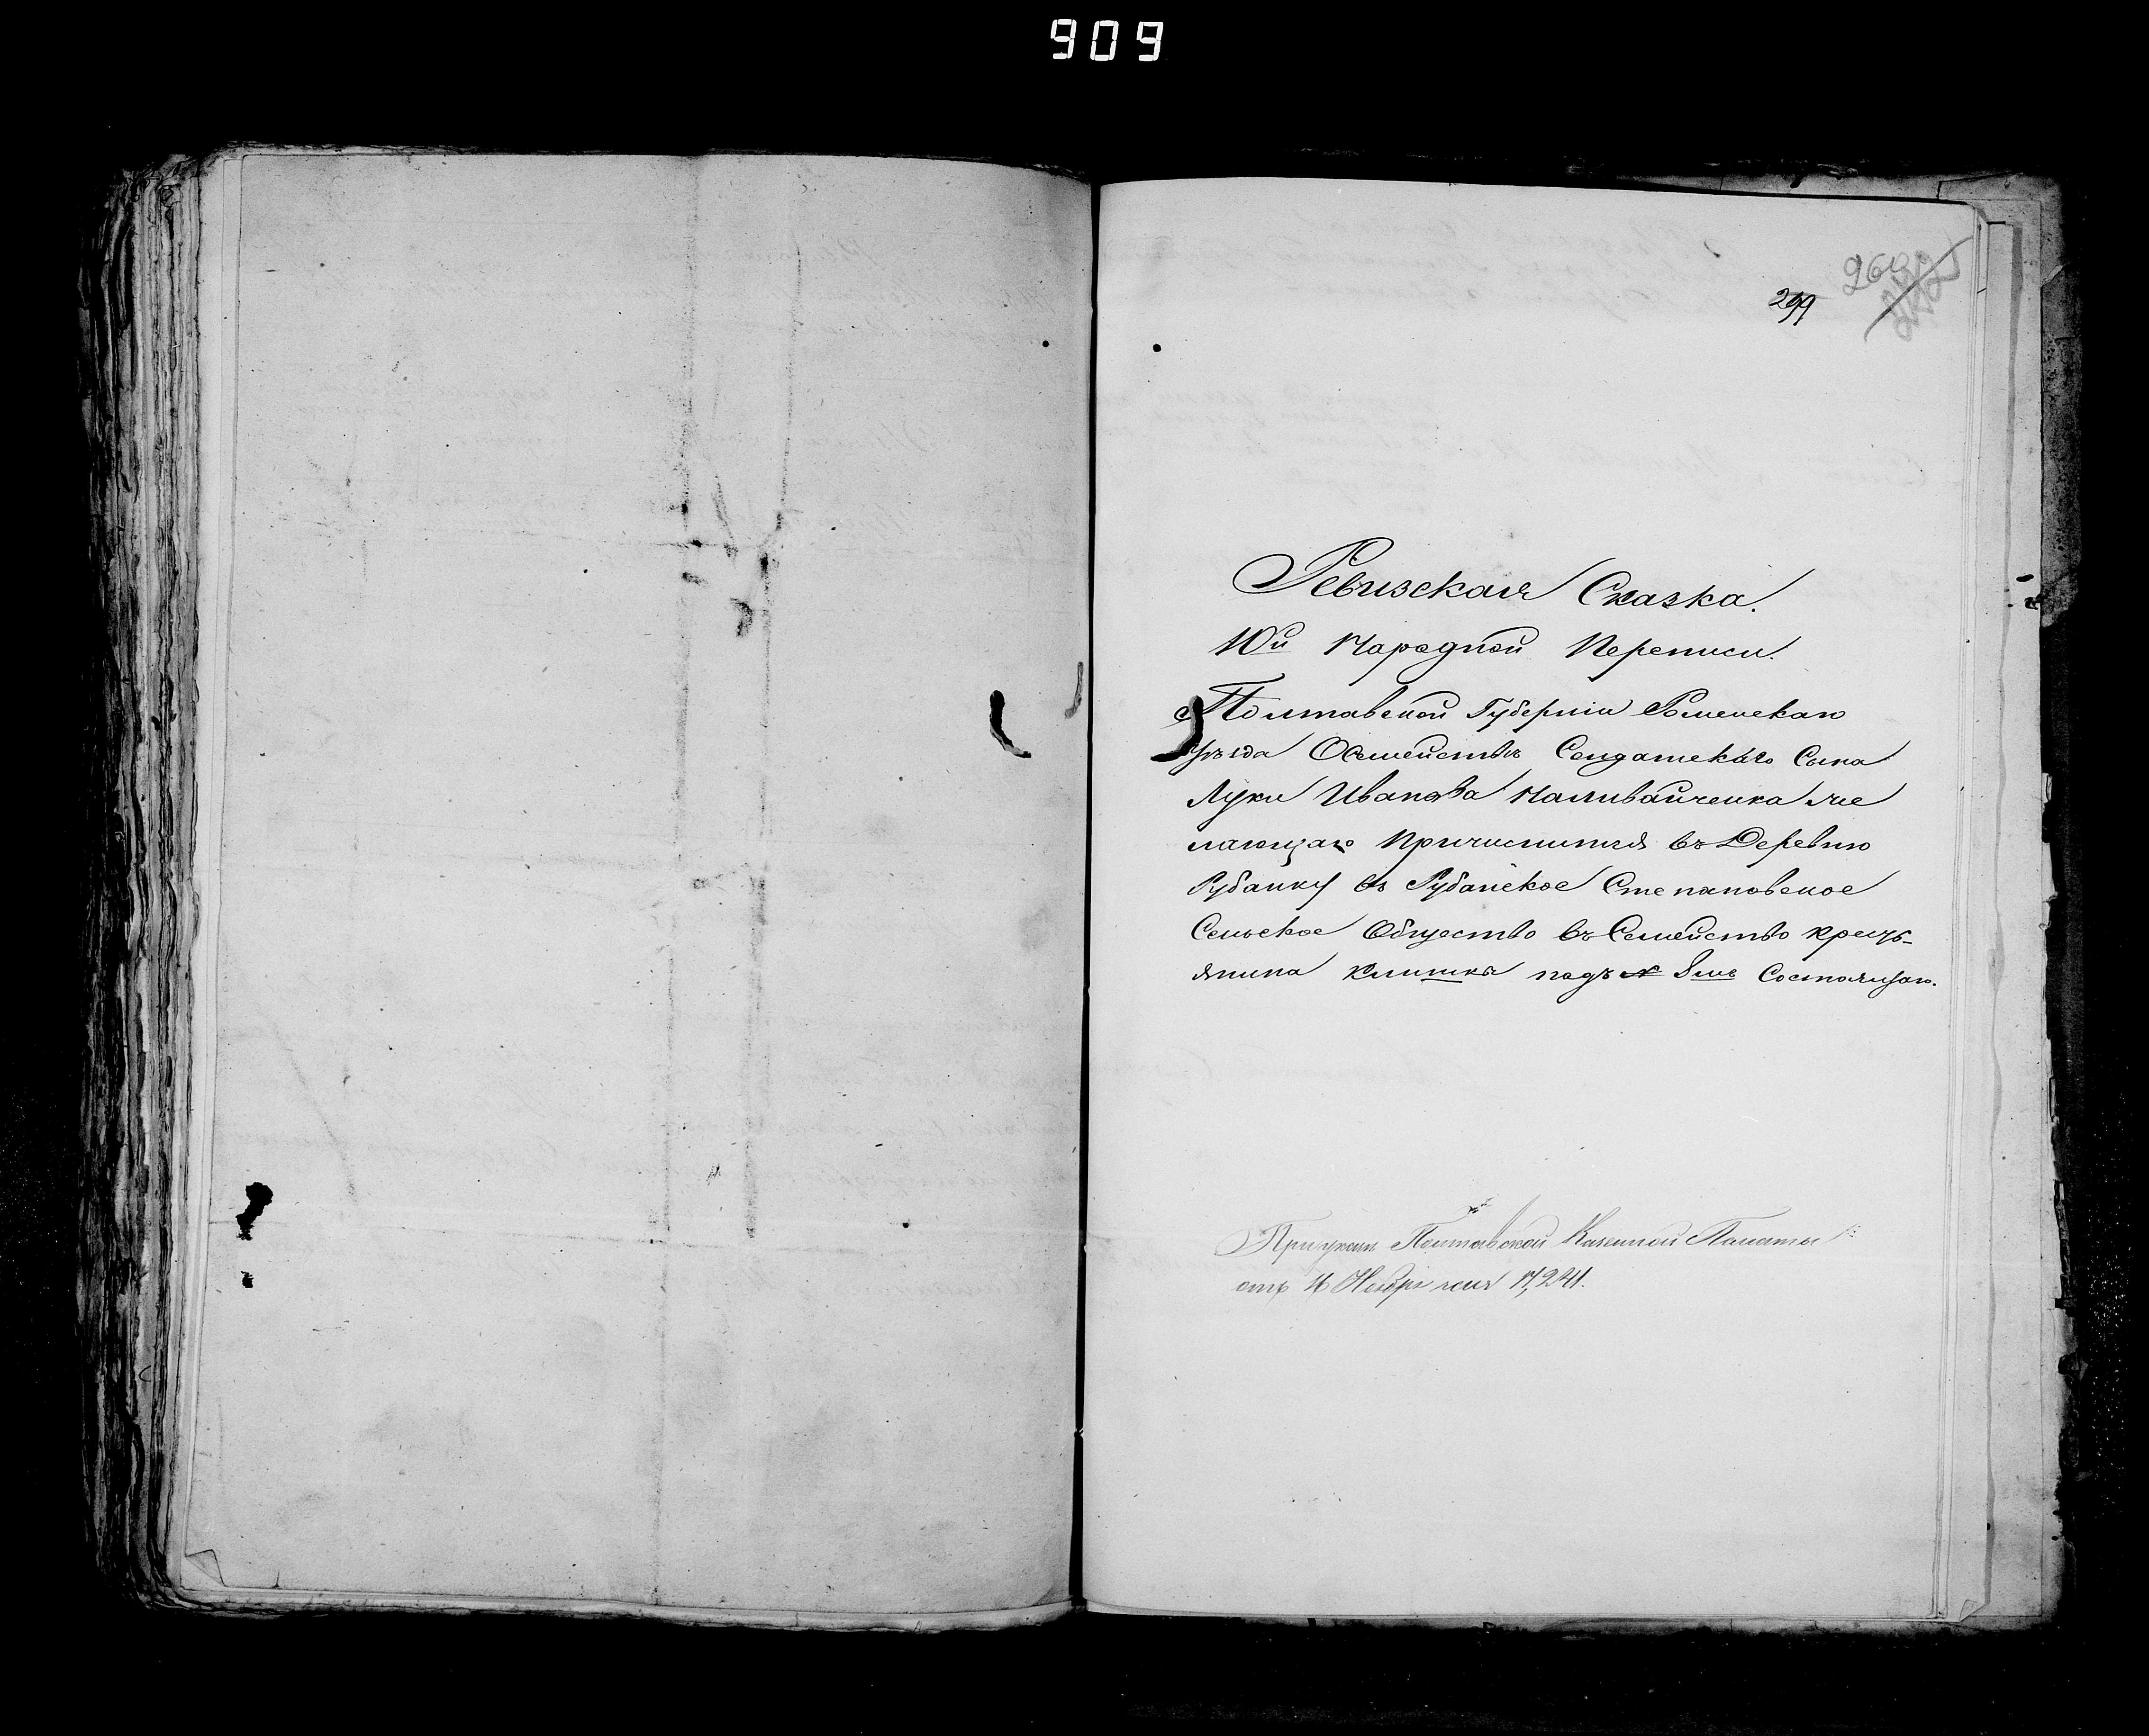 909
299
Ревизская Сказка.
10й Народной Переписи.
Полтавской Губерніи Роменскаго
уѣзда О семействѣ Солдатскаго Сына
Луки Иванова Наливайченка же
лающаго Причислится въ Деревню
Рубанку въ Рубанское Степановское
Сельское Общество въ Семейство крест-
янина подъ № 8мъ Состоящаго.
При указѣ Полтавской Казенной Палаты
отъ 16 Ноября 17,241.